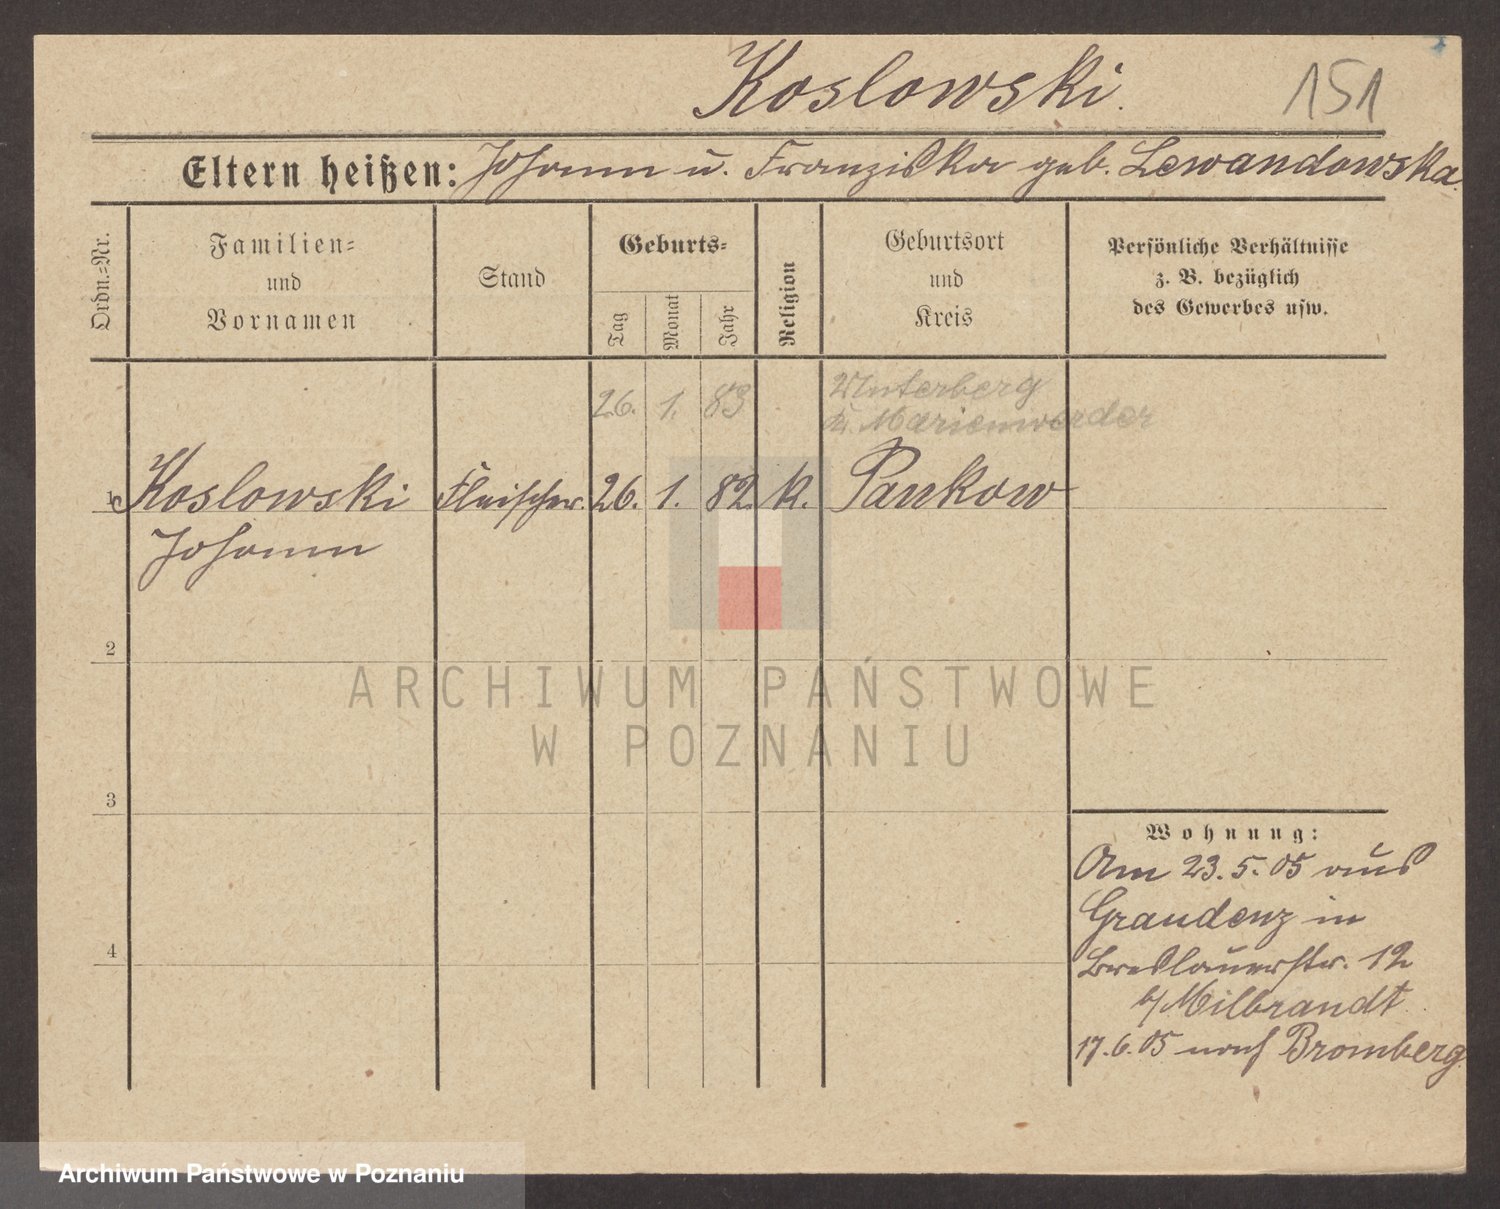 Koslowski.
151
Eltern heißen: Johann u. Franziska geb. Lewandowska.
Ordn.=Nr.
Familien=
und
Vornamen
Stand
Geburts=
Tag
Monat
Jahr
Religion
Geburtsort
und
Kreis
Persönliche Verhältnisse
z. B. bezüglich
des Gewerbes usw.
26. 1. 83 Unterberg
Kr. Marienwerder
1 Koslowski Fleischer. 26. 1. 82. k. Pankow
Johann
2
3
4
Wohnung:
Am 23.5.05 aus
Graudenz in
Breslauerstr. 12
b/ Milbrandt
17.6.05 nach Bromberg
ARCHIWUM PAŃSTWOWE
W POZNANIU
Archiwum Państwowe w Poznaniu